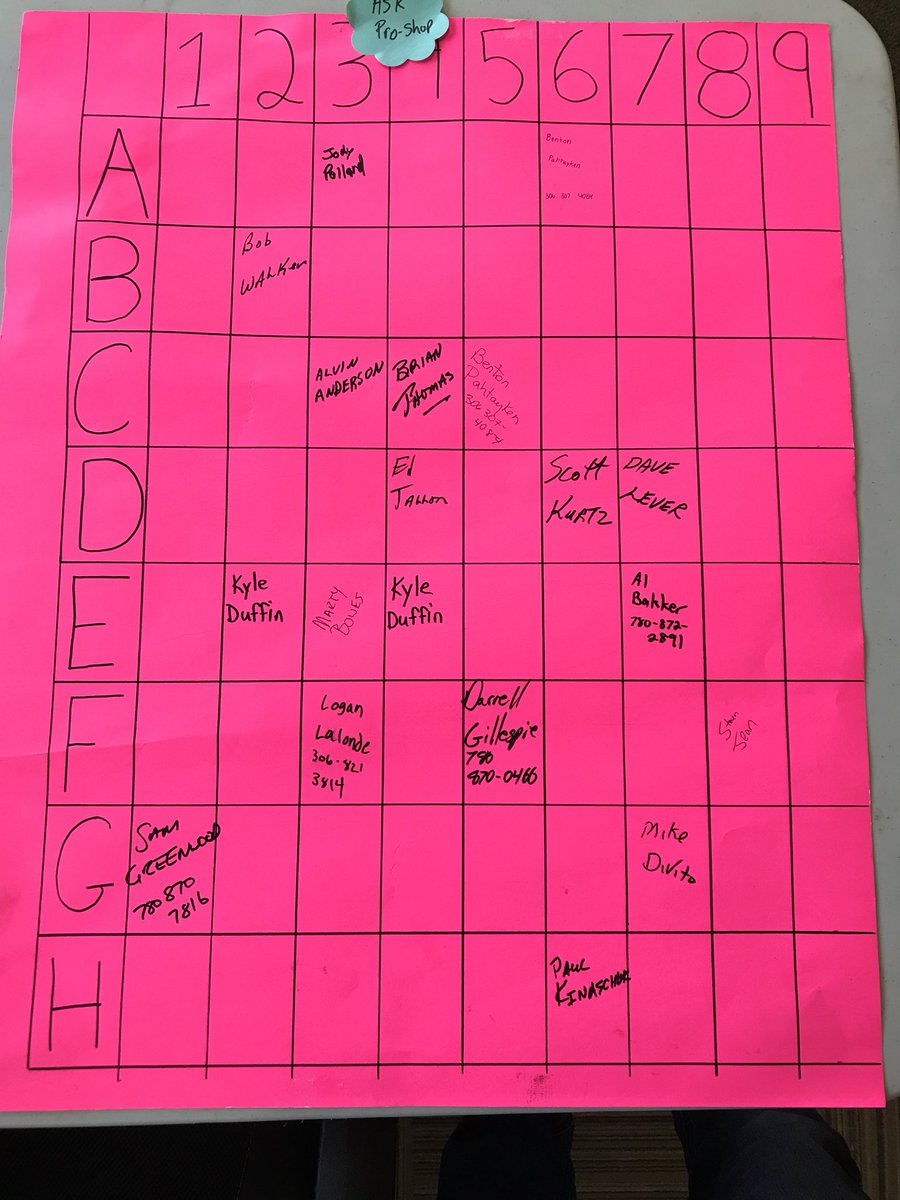 ASK
Pro-Shop
1 2 3 4 5 6 7 8 9
A
Jody
Pollard
Benton
Pahtayken
306 307 4084
B
Bob
WALKer
C
ALVIN
ANDERSON
BRIAN
THOMAS
Benton
Pahtayken
306 307-
4084
D
Ed
TALLON
Scott
KURTZ
DAVE
LEVER
E
Kyle
Duffin
MARTY
BOWES
Kyle
Duffin
Al
Bakker
780-872-
2891
F
Logan
Lalonde
306-821
3814
Darrell
Gillespie
780
870-0466
Sean
G
SAM
GREENWOOD
780 870
7816
Mike
DiVito
H
PAUL